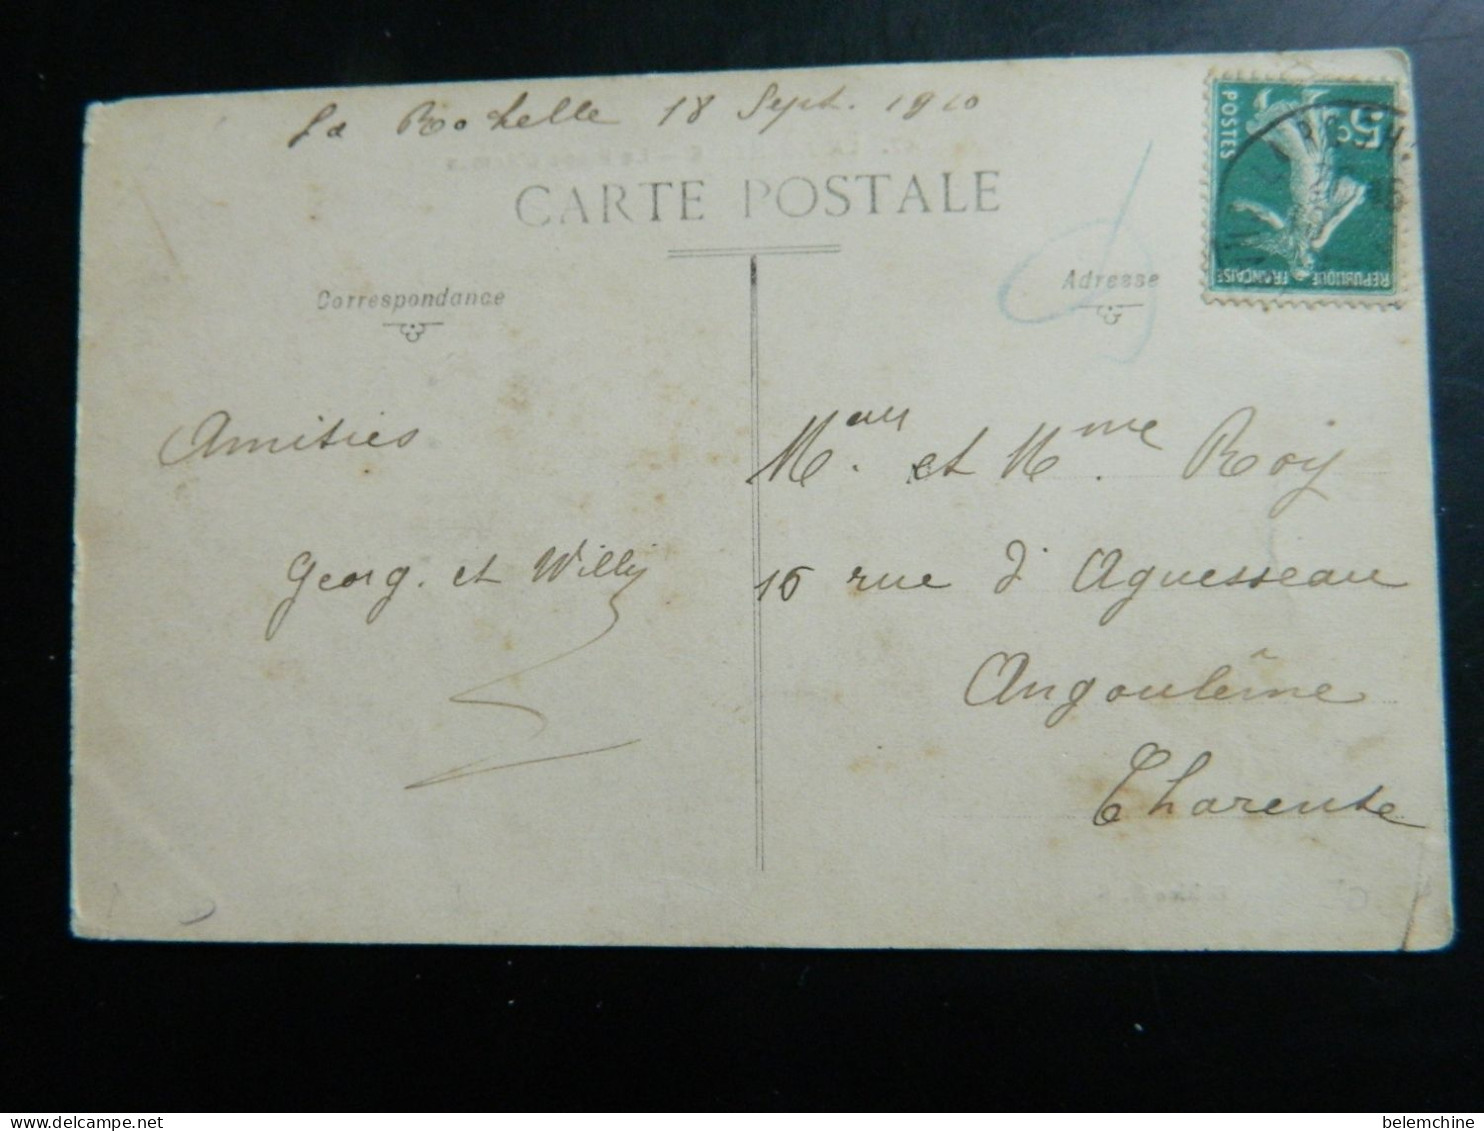 La Rochelle 18 Sept. 1910
CARTE POSTALE
Correspondance
Adresse
POSTES
5c
RÉPUBLIQUE FRANÇAISE
LA ROCH
Amitiés
Georg. et Willy
M. et Mme Roy
15 rue d'Aguesseau
Angoulême
Charente
belemchine